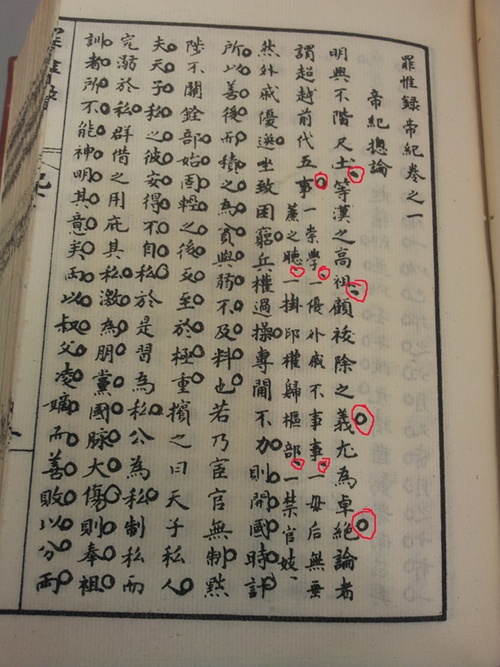 罪惟錄帝紀卷之一
帝紀總論
明興不階尺土等漢之高祖顧祓除之義尤為卓絕論者
謂超越前代五事一崇學一優外戚不事事一毋后無垂
簾之聽一掛印權歸樞部一禁官妓、
然外戚優選坐致困窮兵權過操專閫不力則開國時計
所以善後而積之為貧與弱不及料也若乃宦官無制黜
陟不關銓部始固輕之後反至於極重擯之曰天子私人
夫天子私之彼安得不自私於是習為私公為私制私而
究溺於私群借之用庇其私激為朋黨國脈大傷則奉祖
訓者所不能神明其意矣而以叔父凌嫡而善敗以分兩